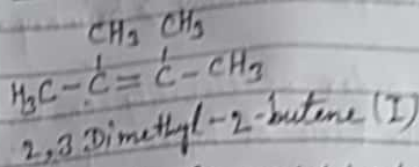 CH3 CH3
H3C-C=C-CH3
2,3 Dimethyl-2-butene (I)